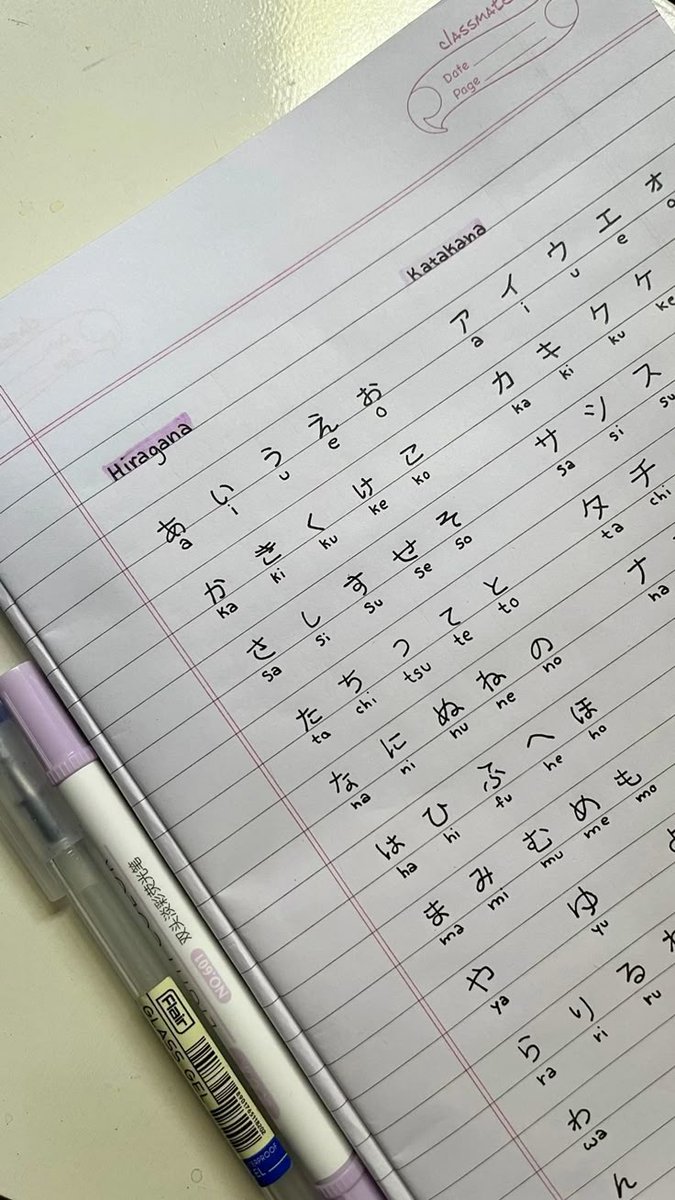 classmate
Date
Page
Katakana
ア イ ウ エ オ
a i u e o
カ キ ク ケ
ka ki ku ke
サ シ ス
sa si su
タ チ
ta chi
ナ
na
Hiragana
あ い う え お
a i u e o
か き く け こ
ka ki ku ke ko
さ し す せ そ
sa si su se so
た ち つ て と
ta chi tsu te to
な に ぬ ね の
na ni nu ne no
は ひ ふ へ ほ
ha hi fu he ho
ま み む め も
ma mi mu me mo
や ゆ
ya yu
ら り る
ra ri ru
わ
wa
ん
双头淡彩荧光笔
NO.601
Flair
GLASS GEL